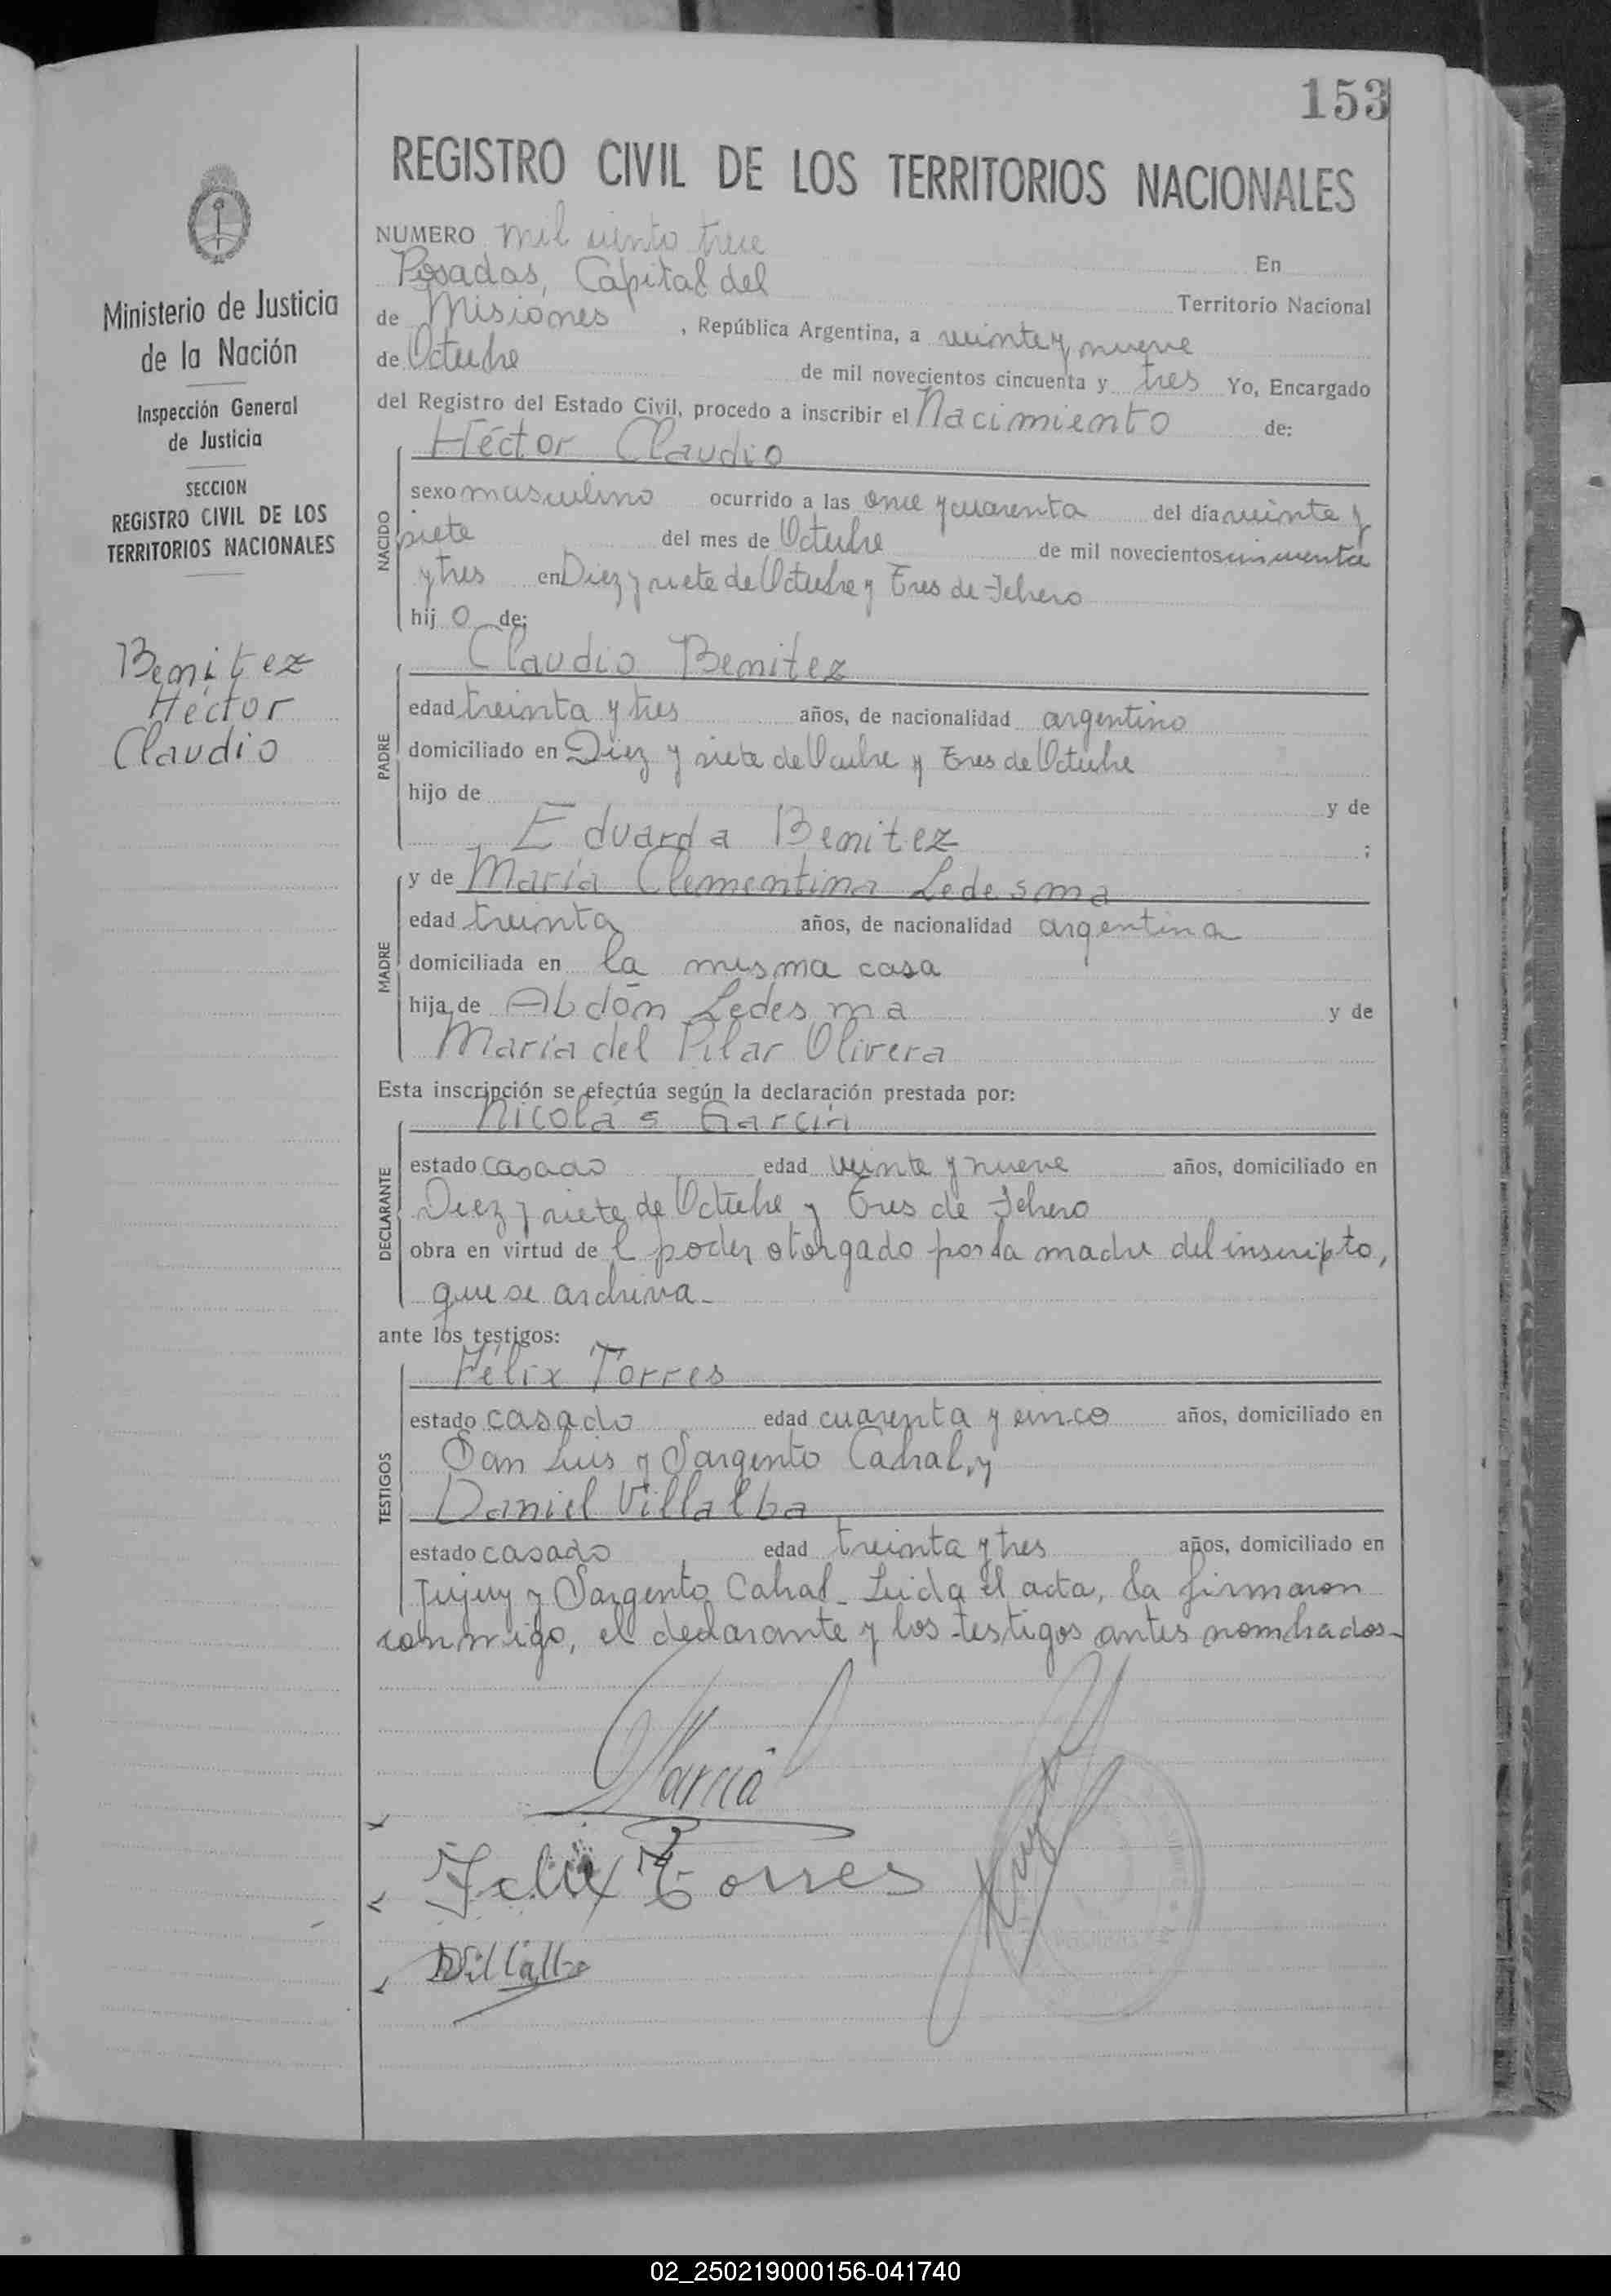 153
REGISTRO CIVIL DE LOS TERRITORIOS NACIONALES
Ministerio de Justicia
de la Nación
Inspección General
de Justicia
SECCION
REGISTRO CIVIL DE LOS
TERRITORIOS NACIONALES
Benítez
Héctor
Claudio
NUMERO mil ciento trece
En
Posadas, Capital del
Territorio Nacional
de Misiones, República Argentina, a veinte y nueve
de Octubre de mil novecientos cincuenta y tres Yo, Encargado
del Registro del Estado Civil, procedo a inscribir el Nacimiento de:
NACIDO
Héctor Claudio
sexo masculino ocurrido a las once y cuarenta del día veinte y
siete del mes de Octubre de mil novecientos cincuenta
y tres en Diez y siete de Octubre y Tres de Febrero
hij o de:
PADRE
Claudio Benitez
edad treinta y tres años, de nacionalidad argentino
domiciliado en Diez y siete de Ocubre y Tres de Octubre
hijo de y de
Eduarda Benitez ;
MADRE
y de María Clementina Ledesma
edad treinta años, de nacionalidad argentina
domiciliada en la misma casa
hija de Abdón Ledesma y de
María del Pilar Olivera
Esta inscripción se efectúa según la declaración prestada por:
DECLARANTE
Nicolás García
estado casado edad veinte y nueve años, domiciliado en
Diez y siete de Octubre y Tres de Febrero
obra en virtud de l poder otorgado por la madre del inscripto,
que se archiva-
ante los testigos:
TESTIGOS
Félix Torres
estado casado edad cuarenta y cinco años, domiciliado en
San Luis y Sargento Cabral, y
Daniel Villalba
estado casado edad treinta y tres años, domiciliado en
Jujuy y Sargento Cabral- Leida el acta, la firmaron
conmigo, el declarante y los testigos antes nombrados-
García
Felix Torres
DVillalba
02_250219000156-041740